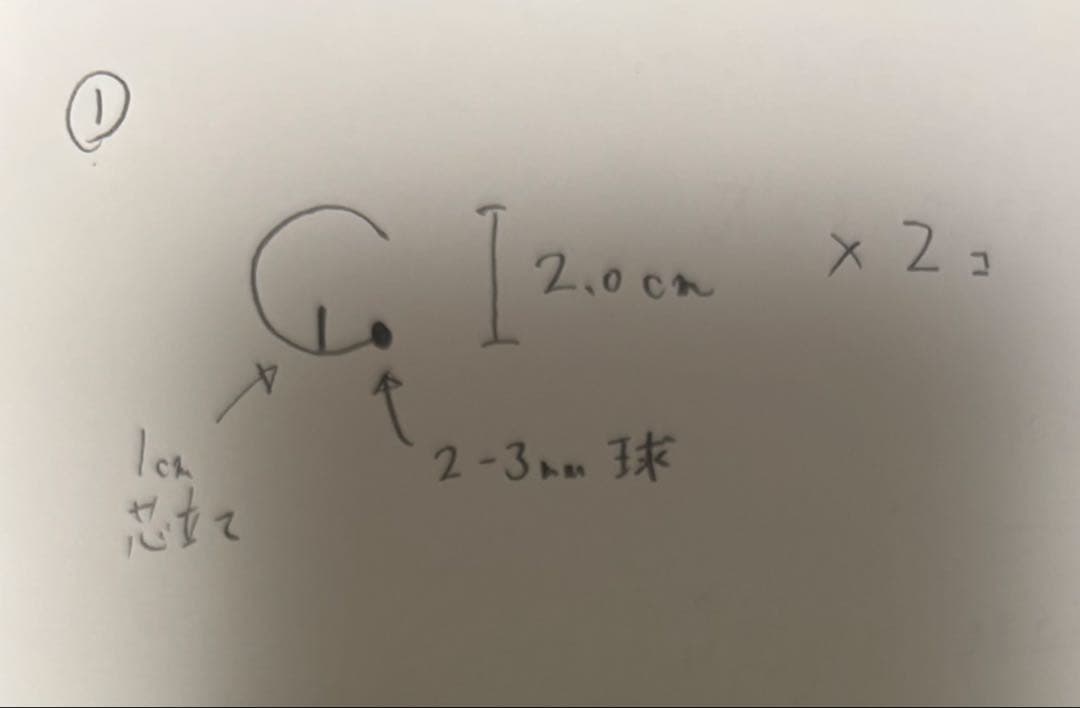 ①
2.0cm ×2コ
1cm
芯立て
2-3mm 球